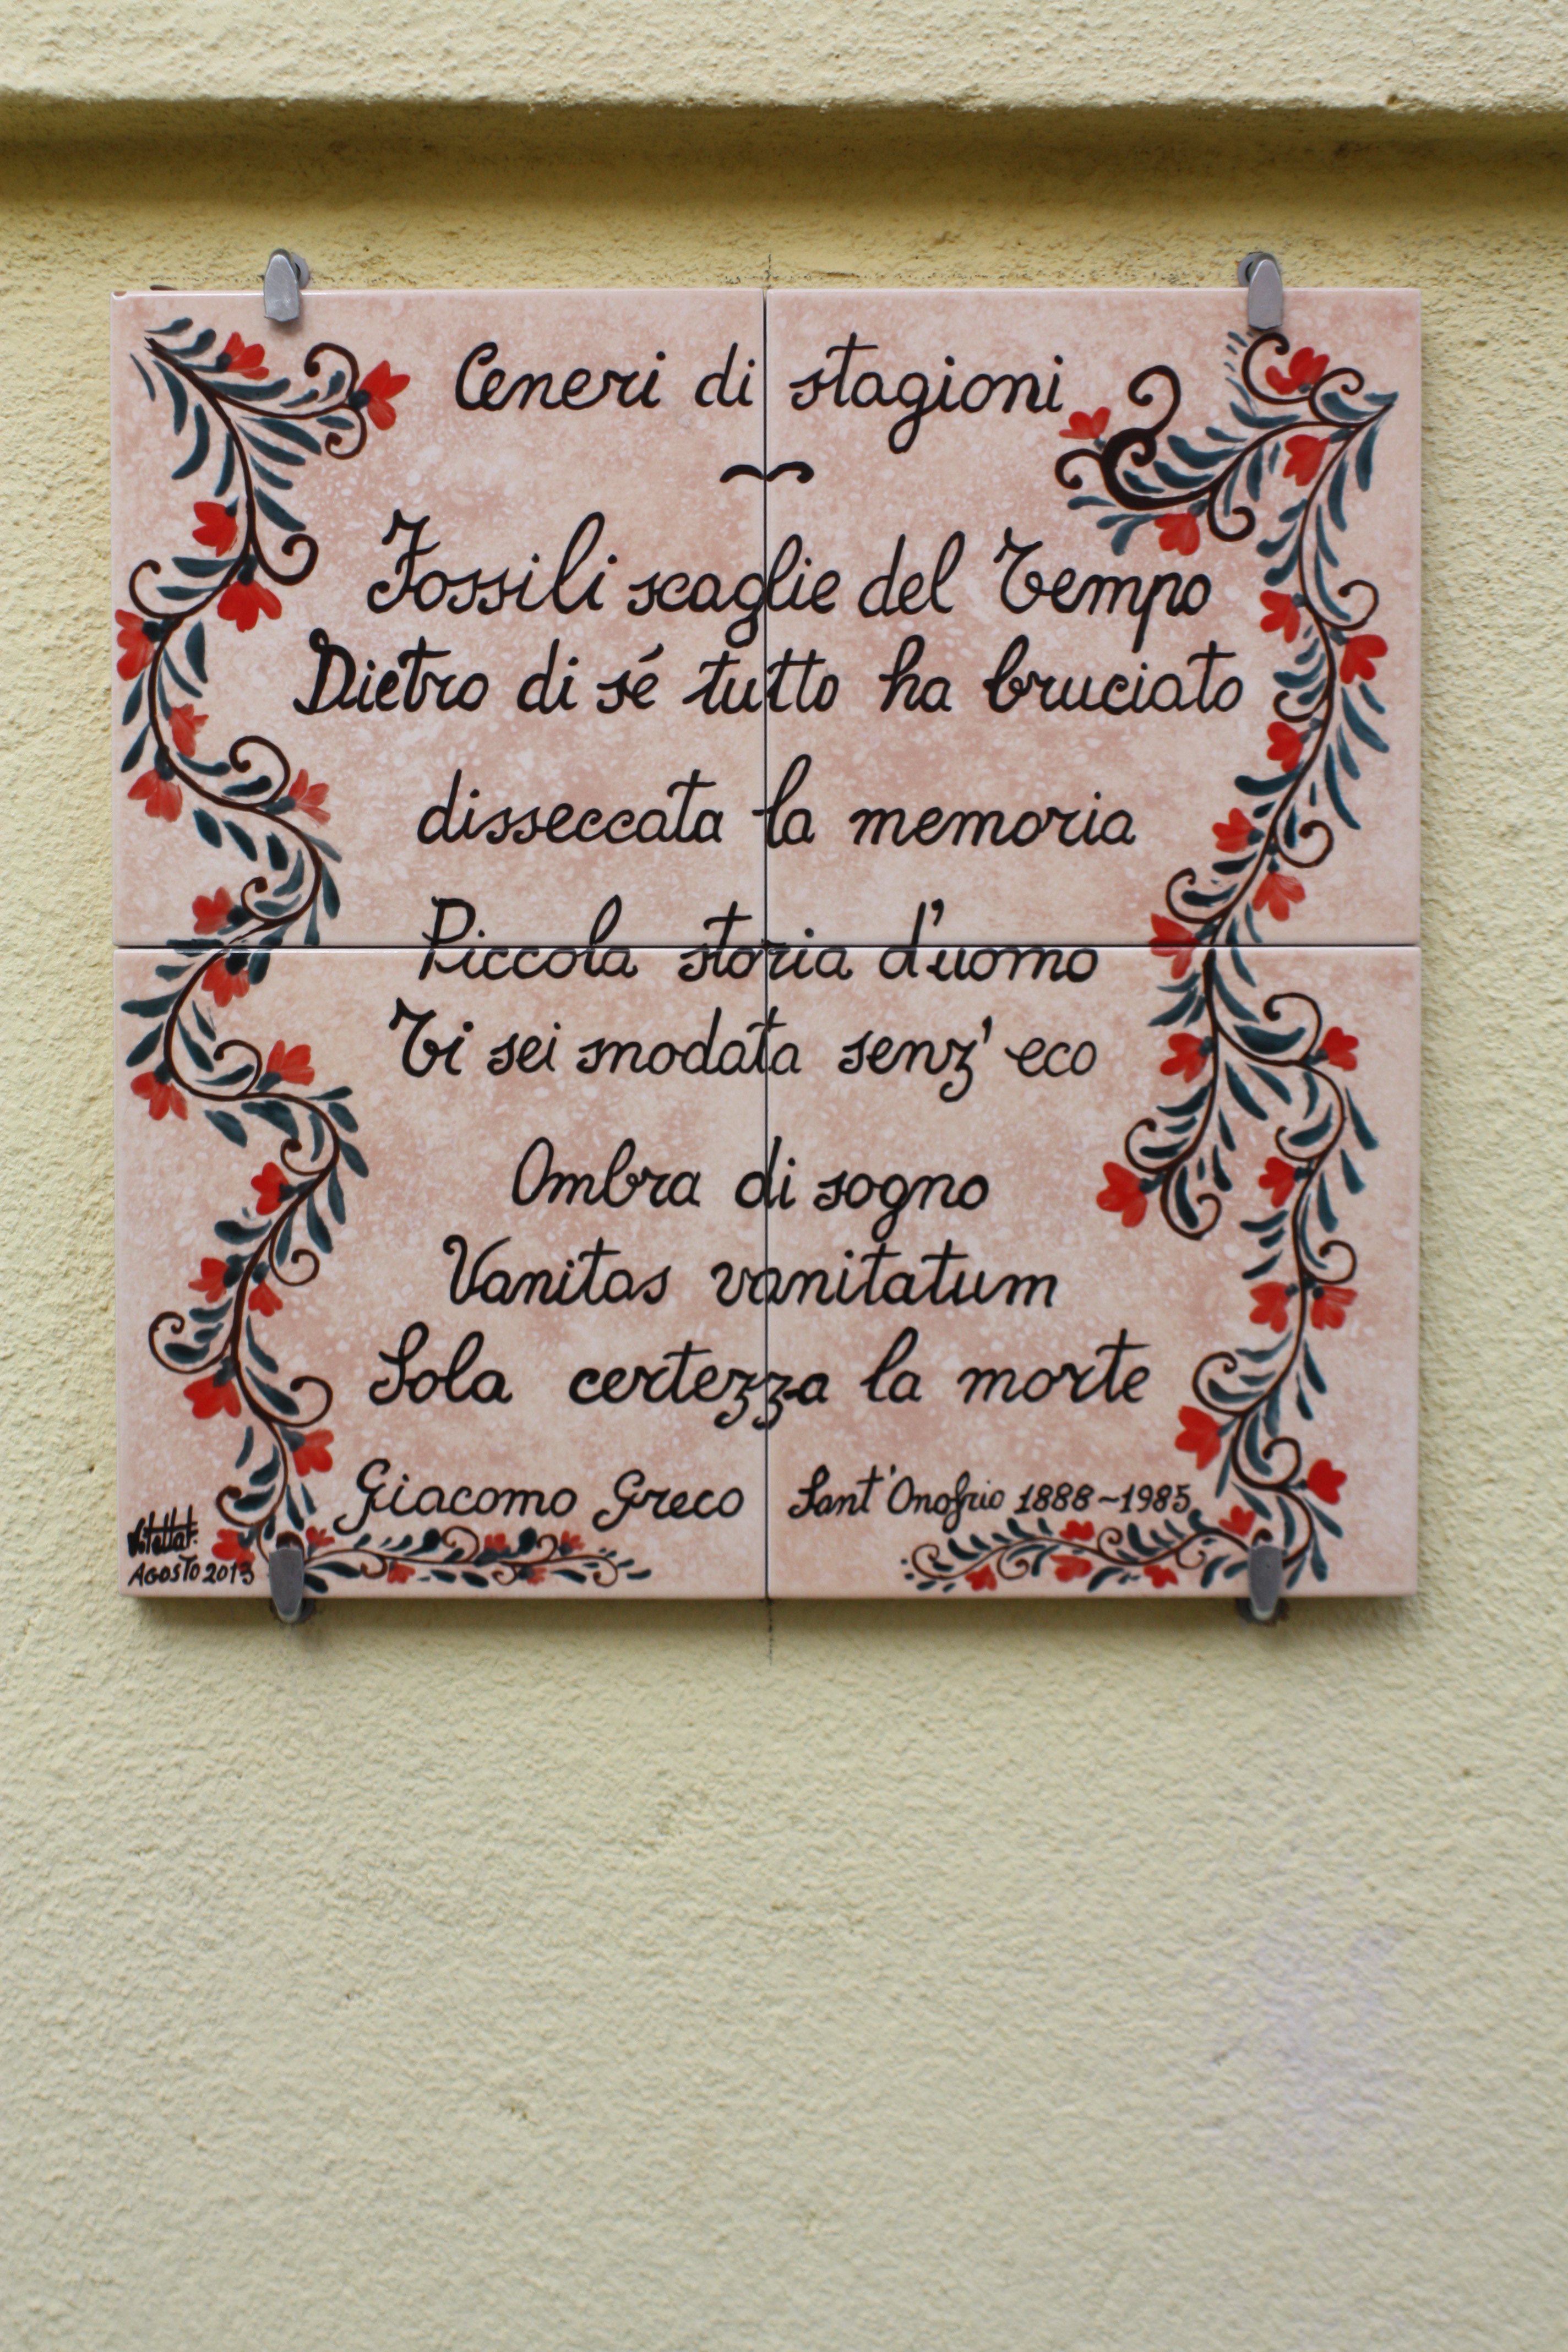 Ceneri di stagioni
Fossili scaglie del Tempo
Dietro di sé tutto ha bruciato
disseccata la memoria
Piccola storia d'uomo
Ti sei snodata senz' eco
Ombra di sogno
Vanitas vanitatum
Sola certezza la morte
Giacomo Greco Sant'Onofrio 1888-1985
AGOSTO 2013